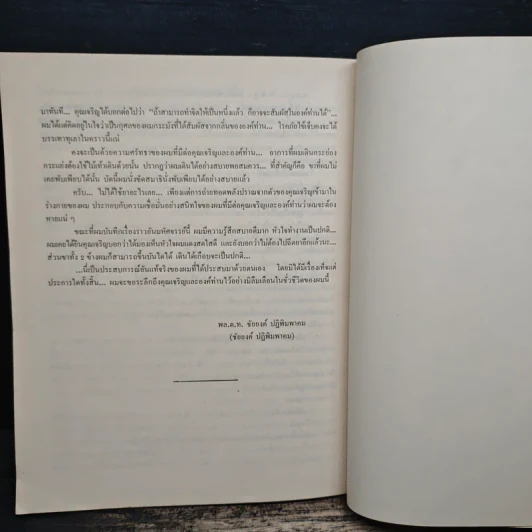 มาทันที... คุณเจริญได้บอกต่อไปว่า “ถ้าสามารถทำจิตให้เป็นหนึ่งแล้ว ก็อาจจะสัมผัสในองค์ท่านได้”...
ผมได้แต่คิดอยู่ในใจว่าเป็นกุศลของผมกระมังที่ได้สัมผัสจากกลิ่นขององค์ท่าน... โรคภัยไข้เจ็บคงจะได้
บรรเทาทุเลาในคราวนี้แน่
คงจะเป็นด้วยความศรัทธาของผมที่มีต่อคุณเจริญและองค์ท่าน... อาการที่ผมเดินกระย่อง
กระแย่งต้องใช้ไม้เท้าเดินด้วยนั้น ปรากฏว่าผมเดินได้อย่างสบายพอสมควร... ที่สำคัญก็คือ ขาที่ผมไม่
เคยพับเพียบได้นั้น บัดนี้ผมนั่งขัดสมาธินั่งพับเพียบได้อย่างสบายแล้ว
ครับ... ไม่ได้ใช้ยาอะไรเลย... เพียงแต่การถ่ายทอดพลังปราณจากตัวของคุณเจริญเข้ามาใน
ร่างกายของผม ประกอบกับความเชื่อมั่นอย่างสนิทใจของผมที่มีต่อคุณเจริญและองค์ท่านว่าผมจะต้อง
หายแน่ ๆ
ขณะที่ผมบันทึกเรื่องราวอันมหัศจรรย์นี้ ผมมีความรู้สึกสบายดีมาก หัวใจทำงานเป็นปกติ...
ผมเคยได้ยินคุณเจริญบอกว่าได้มองเห็นหัวใจผมแดงสดใสดี และยังบอกว่าไม่ต้องไปฉีดยาอีกแล้วนะ...
ส่วนขาทั้ง ๒ ข้างผมก็สามารถขึ้นบันไดได้ เดินได้เกือบจะเป็นปกติ...
...นี่เป็นประสบการณ์อันแท้จริงของผมที่ได้ประสบมาด้วยตนเอง โดยมิได้มีเรื่องเท็จแต่
ประการใดทั้งสิ้น... ผมจะขอระลึกถึงคุณเจริญและองค์ท่านไว้อย่างมิลืมเลือนในชั่วชีวิตของผมนี้
พล.ต.ท. ชัยยงค์ ปฏิพิมพาคม
(ชัยยงค์ ปฏิพิมพาคม)